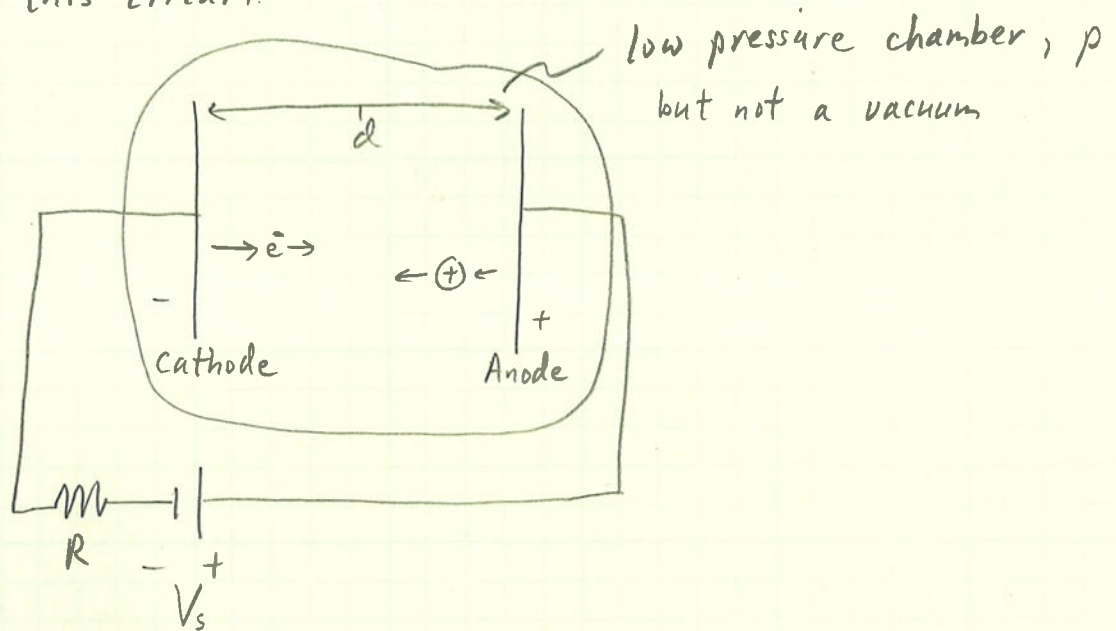 this circuit.
low pressure chamber, p
but not a vacuum
d
→ e⁻ →
← ⊕ ←
-
+
Cathode
Anode
R
- +
Vs